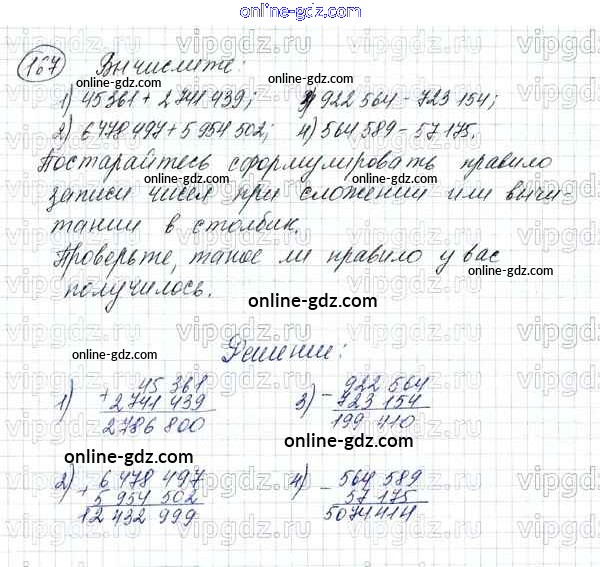 online-gdz.com
167 Вычислите:
online-gdz.com online-gdz.com
1) 45361 + 2 741 439; 3) 922 564 - 723 154;
2) 6 478 497 + 5 954 502; 4) 564 589 - 57 175.
Постарайтесь сформулировать правило
записи чисел при сложении или вычи-
тании в столбик.
online-gdz.com
Проверьте, такое ли правило у вас
online-gdz.com
получилось.
online-gdz.com
online-gdz.com
Решение:
1) + 45 361 3) - 922 564
2 741 439 723 154
2 786 800 199 410
online-gdz.com
online-gdz.com
2) + 6 478 497 4) - 564 589
5 954 502 57 175
12 432 999 5074414
online-gdz.com online-gdz.com